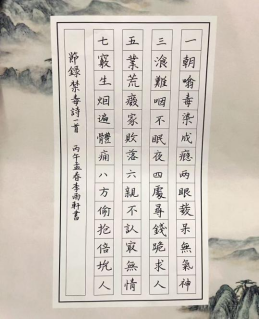 一朝吸毒染成瘾两眼发呆无氣神
三飡難咽不眠夜四處尋錢跪求人
五業荒廢家敗落六親不认寂無情
七竅生烟遍體痛八方偷抢倍坑人
節録禁毒詩一首 丙午孟春李雨軒書